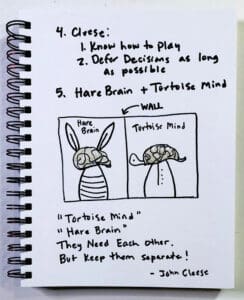 4. Cleese:
1. Know how to play
2. Defer Decisions as long
as possible
5. Hare Brain + Tortoise Mind
WALL
Hare
Brain
Tortoise Mind
"Tortoise Mind"
"Hare Brain"
They Need Each Other.
But keep them separate!
- John Cleese